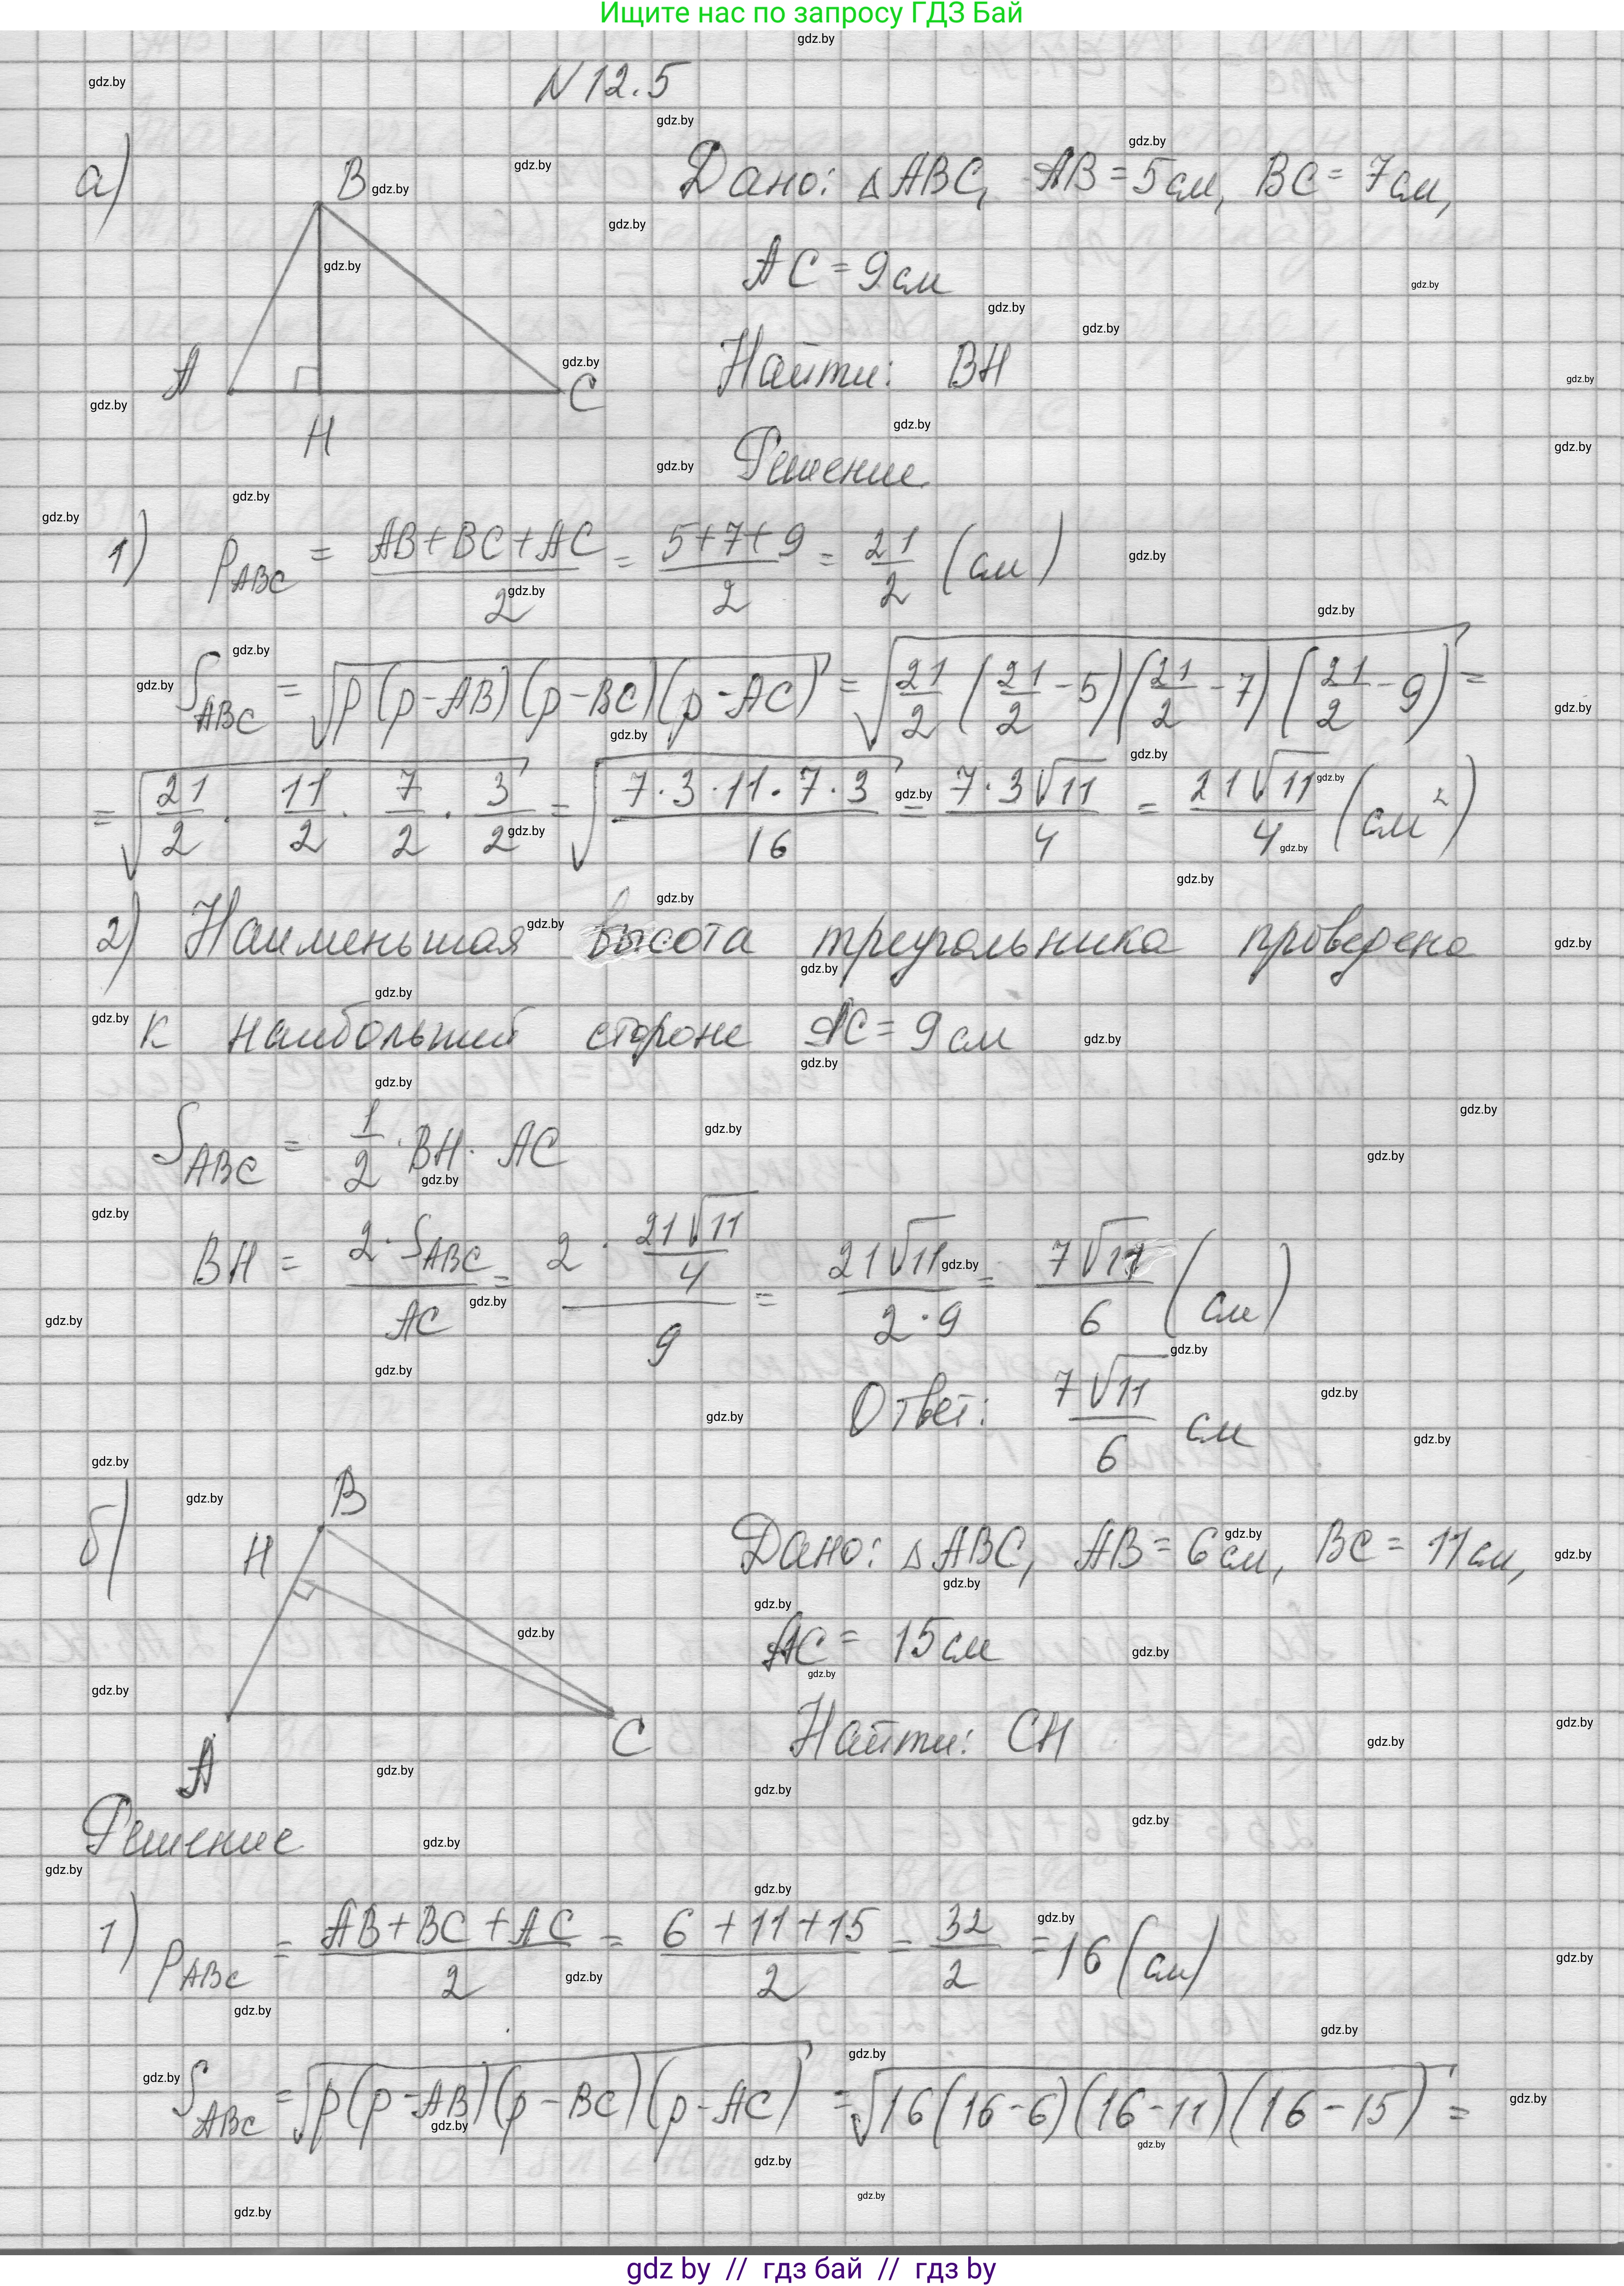 Ищите нас по запросу ГДЗ Бай
N 12.5
а)
B
A
H
C
Дано: △ABC, AB = 5 см, BC = 7 см,
AC = 9 см
Найти: BH
Решение
1) p_ABC = (AB+BC+AC)/2 = (5+7+9)/2 = 21/2 (см)
S_ABC = √(p(p-AB)(p-BC)(p-AC)) = √(21/2 (21/2 - 5)(21/2 - 7)(21/2 - 9)) =
= √(21/2 · 11/2 · 7/2 · 3/2) = √((7·3·11·7·3)/16) = (7·3√11)/4 = (21√11)/4 (см²)
2) Наименьшая высота треугольника проведена
к наибольший стороне AC = 9 см
S_ABC = 1/2 · BH · AC
BH = (2·S_ABC)/AC = (2 · (21√11)/4)/9 = (21√11)/(2·9) = (7√11)/6 (см)
Ответ: (7√11)/6 см
б)
B
H
A
C
Дано: △ABC, AB = 6 см, BC = 11 см,
AC = 15 см
Найти: CH
Решение
1) p_ABC = (AB+BC+AC)/2 = (6+11+15)/2 = 32/2 = 16 (см)
S_ABC = √(p(p-AB)(p-BC)(p-AC)) = √(16(16-6)(16-11)(16-15)) =
gdz by // гдз бай // гдз by